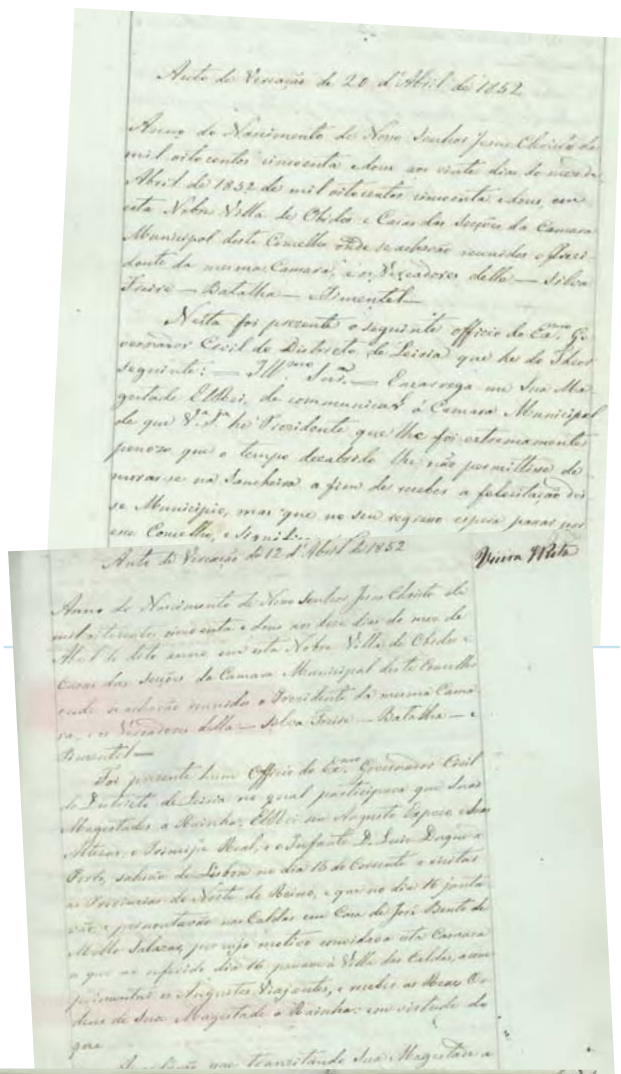 Auto de Vereação de 20 d'Abril de 1852
Anno do Nascimento de Nosso Senhor Jesus Christo de
mil oito centos cincoenta e dous aos vinte dias do mez de
Abril de 1852 de mil oito centos cincoenta e dous, em
esta Nobre Villa de Obidos e Casas das Sessões da Camara
Municipal deste Concelho onde se achavão reunidos o Presi-
dente da mesma Camara, e os Vereadores della — Silva
Freire — Batalha — Pimentel —
Nesta foi presente o seguinte officio do Ex.mo Go
vernador Civil do Districto de Leiria que he do Theor
seguinte: — Ill.mo Snr. — Encarrega me Sua Ma
gestade ElRei, de communicar á Camara Municipal
de que V.ª S.ª he Presidente que lhe foi extremamente
penozo que o tempo decorrido lhe não permittisse de
morar-se na Sancheira a fim de receber a felicitação des
se Municipio, mas que no seu regresso espera passar por
esse Concelho,
Auto de Vereação de 12 d'Abril de 1852
Anno do Nascimento de Nosso Senhor Jesus Christo de
mil oito centos cincoenta e dous aos doze dias do mez de
Abril do dito anno em esta Nobre Villa de Obidos e
Casas das Sessões da Camara Municipal deste Concelho
onde se achavão reunidos o Presidente da mesma Cama
ra, e os Vereadores della — Silva Freire — Batalha — e
Pimentel —
Foi presente hum Officio do Ex.mo Governador Civil
do Districto de Leiria no qual participava que Suas
Magestades a Rainha, ElRei seu Augusto Esposo e Suas
Altezas, o Principe Real, e o Infante D. Luis Duque do
Porto, sahirão de Lisboa no dia 15 do Corrente a visitar
as Provincias do Norte do Reino, e que no dia 16 janta
rão, e pernoutarão nas Caldas em Casa de José Bento de
Mello Salazar, por cujo motivo convidava esta Camara
a que no referido dia 16 passasse á Villa das Caldas, a com
primentar os Augustos Viajantes, e receber as Reaes Or
dens de Sua Magestade a Rainha: em virtude do
que
que transitando Sua Magestade a